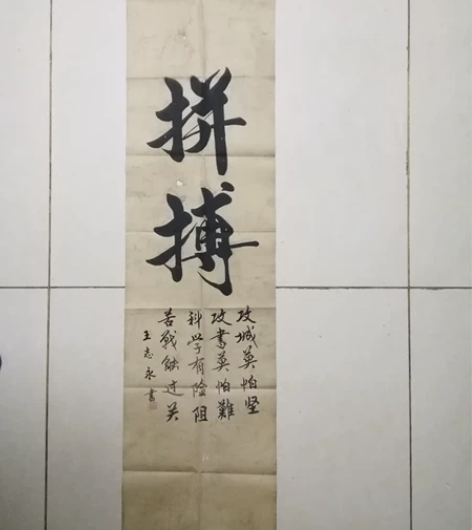 拼搏
攻城莫怕坚
攻書莫怕難
科学有险阻
苦战能过关
王志永書